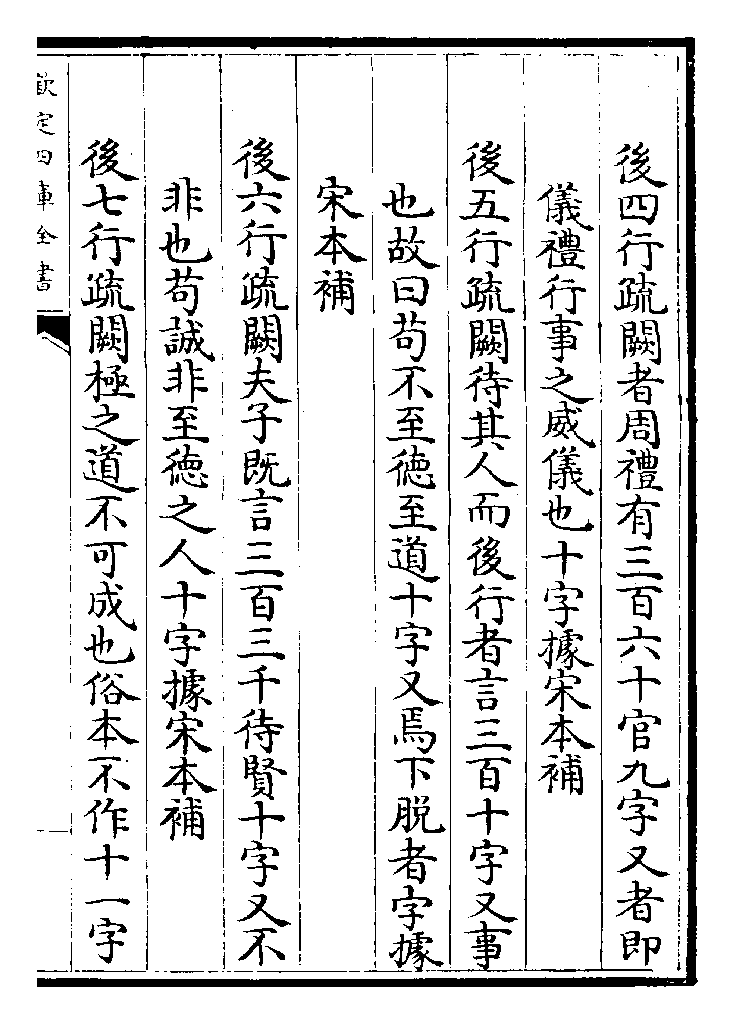 後四行疏闕者周禮有三百六十官九字又者即
儀禮行事之威儀也十字據宋本補
後五行疏闕待其人而後行者言三百十字又事
也故曰苟不至德至道十字又焉下脱者字據
宋本補
後六行疏闕夫子既言三百三千待賢十字又不
非也苟誠非至德之人十字據宋本補
後七行疏闕極之道不可成也俗本不作十一字
欽定四庫全書